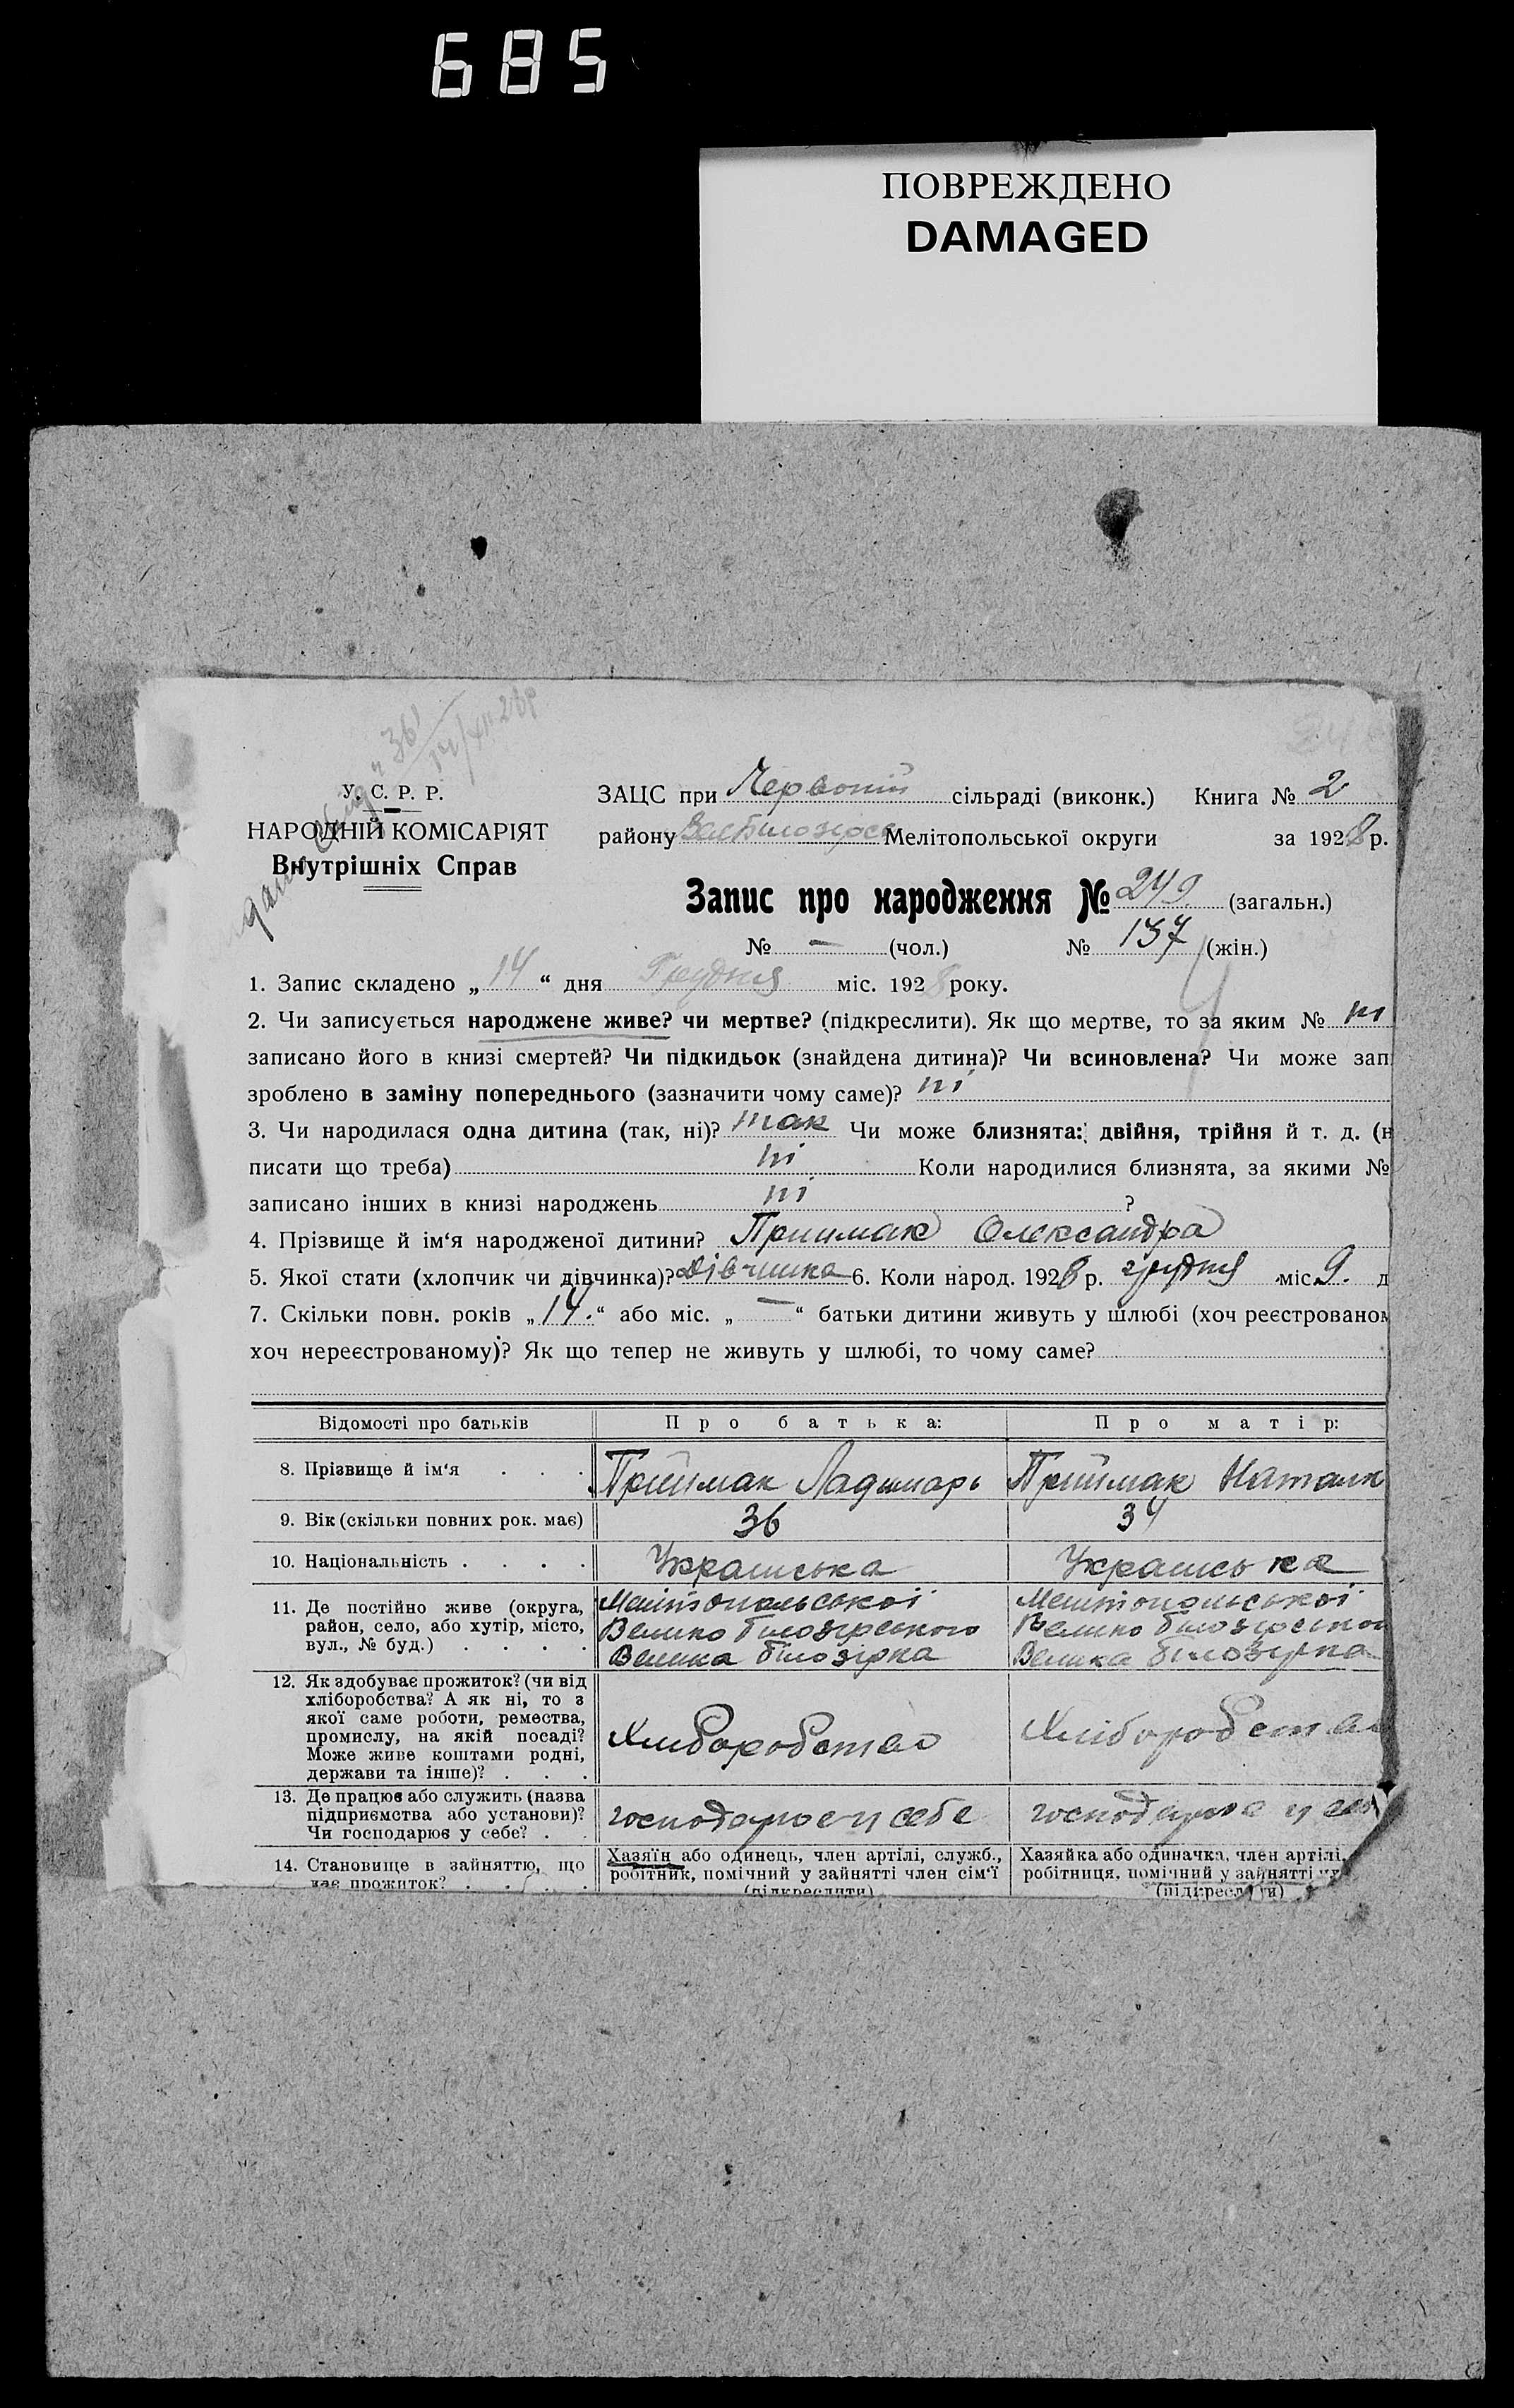 685
ПОВРЕЖДЕНО
DAMAGED
У. С. Р. Р.
НАРОДНІЙ КОМІСАРІЯТ
Внутрішніх Справ
ЗАЦС при Червоній сільраді (виконк.) Книга № 2
району Мелітопольської округи за 1928 р.
Запис про народження № 249 (загальн.)
№ — (чол.) № 137 (жін.)
1. Запис складено „14“ дня Грудня міс. 1928 року.
2. Чи записується народжене живе? чи мертве? (підкреслити). Як що мертве, то за яким № ні
записано його в книзі смертей? Чи підкидьок (знайдена дитина)? Чи всиновлена? Чи може зап
зроблено в заміну попереднього (зазначити чому саме)? ні
3. Чи народилася одна дитина (так, ні)? так Чи може близнята: двійня, трійня й т. д. (н
писати що треба) ні Коли народилися близнята, за якими №
записано інших в книзі народжень ні ?
4. Прізвище й ім‘я народженої дитини? Приймак Олександра
5. Якої стати (хлопчик чи дівчинка)? Дівчинка 6. Коли народ. 1928 р. грудня міс. 9. д
7. Скільки повн. років „14.“ або міс. „—“ батьки дитини живуть у шлюбі (хоч реєстрованом
хоч нереєстрованому)? Як що тепер не живуть у шлюбі, то чому саме?
Відомості про батьків Про батька: Про матір:
8. Прізвище й ім‘я . . . Приймак Приймак Наталк
9. Вік (скільки повних рок. має) 36 34
10. Національність . . . . Українська Українська
11. Де постійно живе (округа, Мелітопольської Мелітопольської
район, село, або хутір, місто, Велико Білозірського Велико Білозірського
вул., № буд.) . . . . Велика Білозірка Велика Білозірка
12. Як здобуває прожиток? (чи від
хліборобства? А як ні, то з
якої саме роботи, ремества,
промислу, на якій посаді? Хліборобством Хліборобством
Може живе коштами родні,
держави та інше)? . . .
13. Де працює або служить (назва
підприємства або установи)? господарює у себе господарює у себе
Чи господарює у себе? . .
14. Становище в зайняттю, що Хазяїн або одинець, член артілі, служб., Хазяйка або одиначка, член артілі,
має прожиток? . . . . робітник, помічний у зайнятті член сім‘ї робітниця, помічний у зайнятті
(підкреслити) (підкреслити)